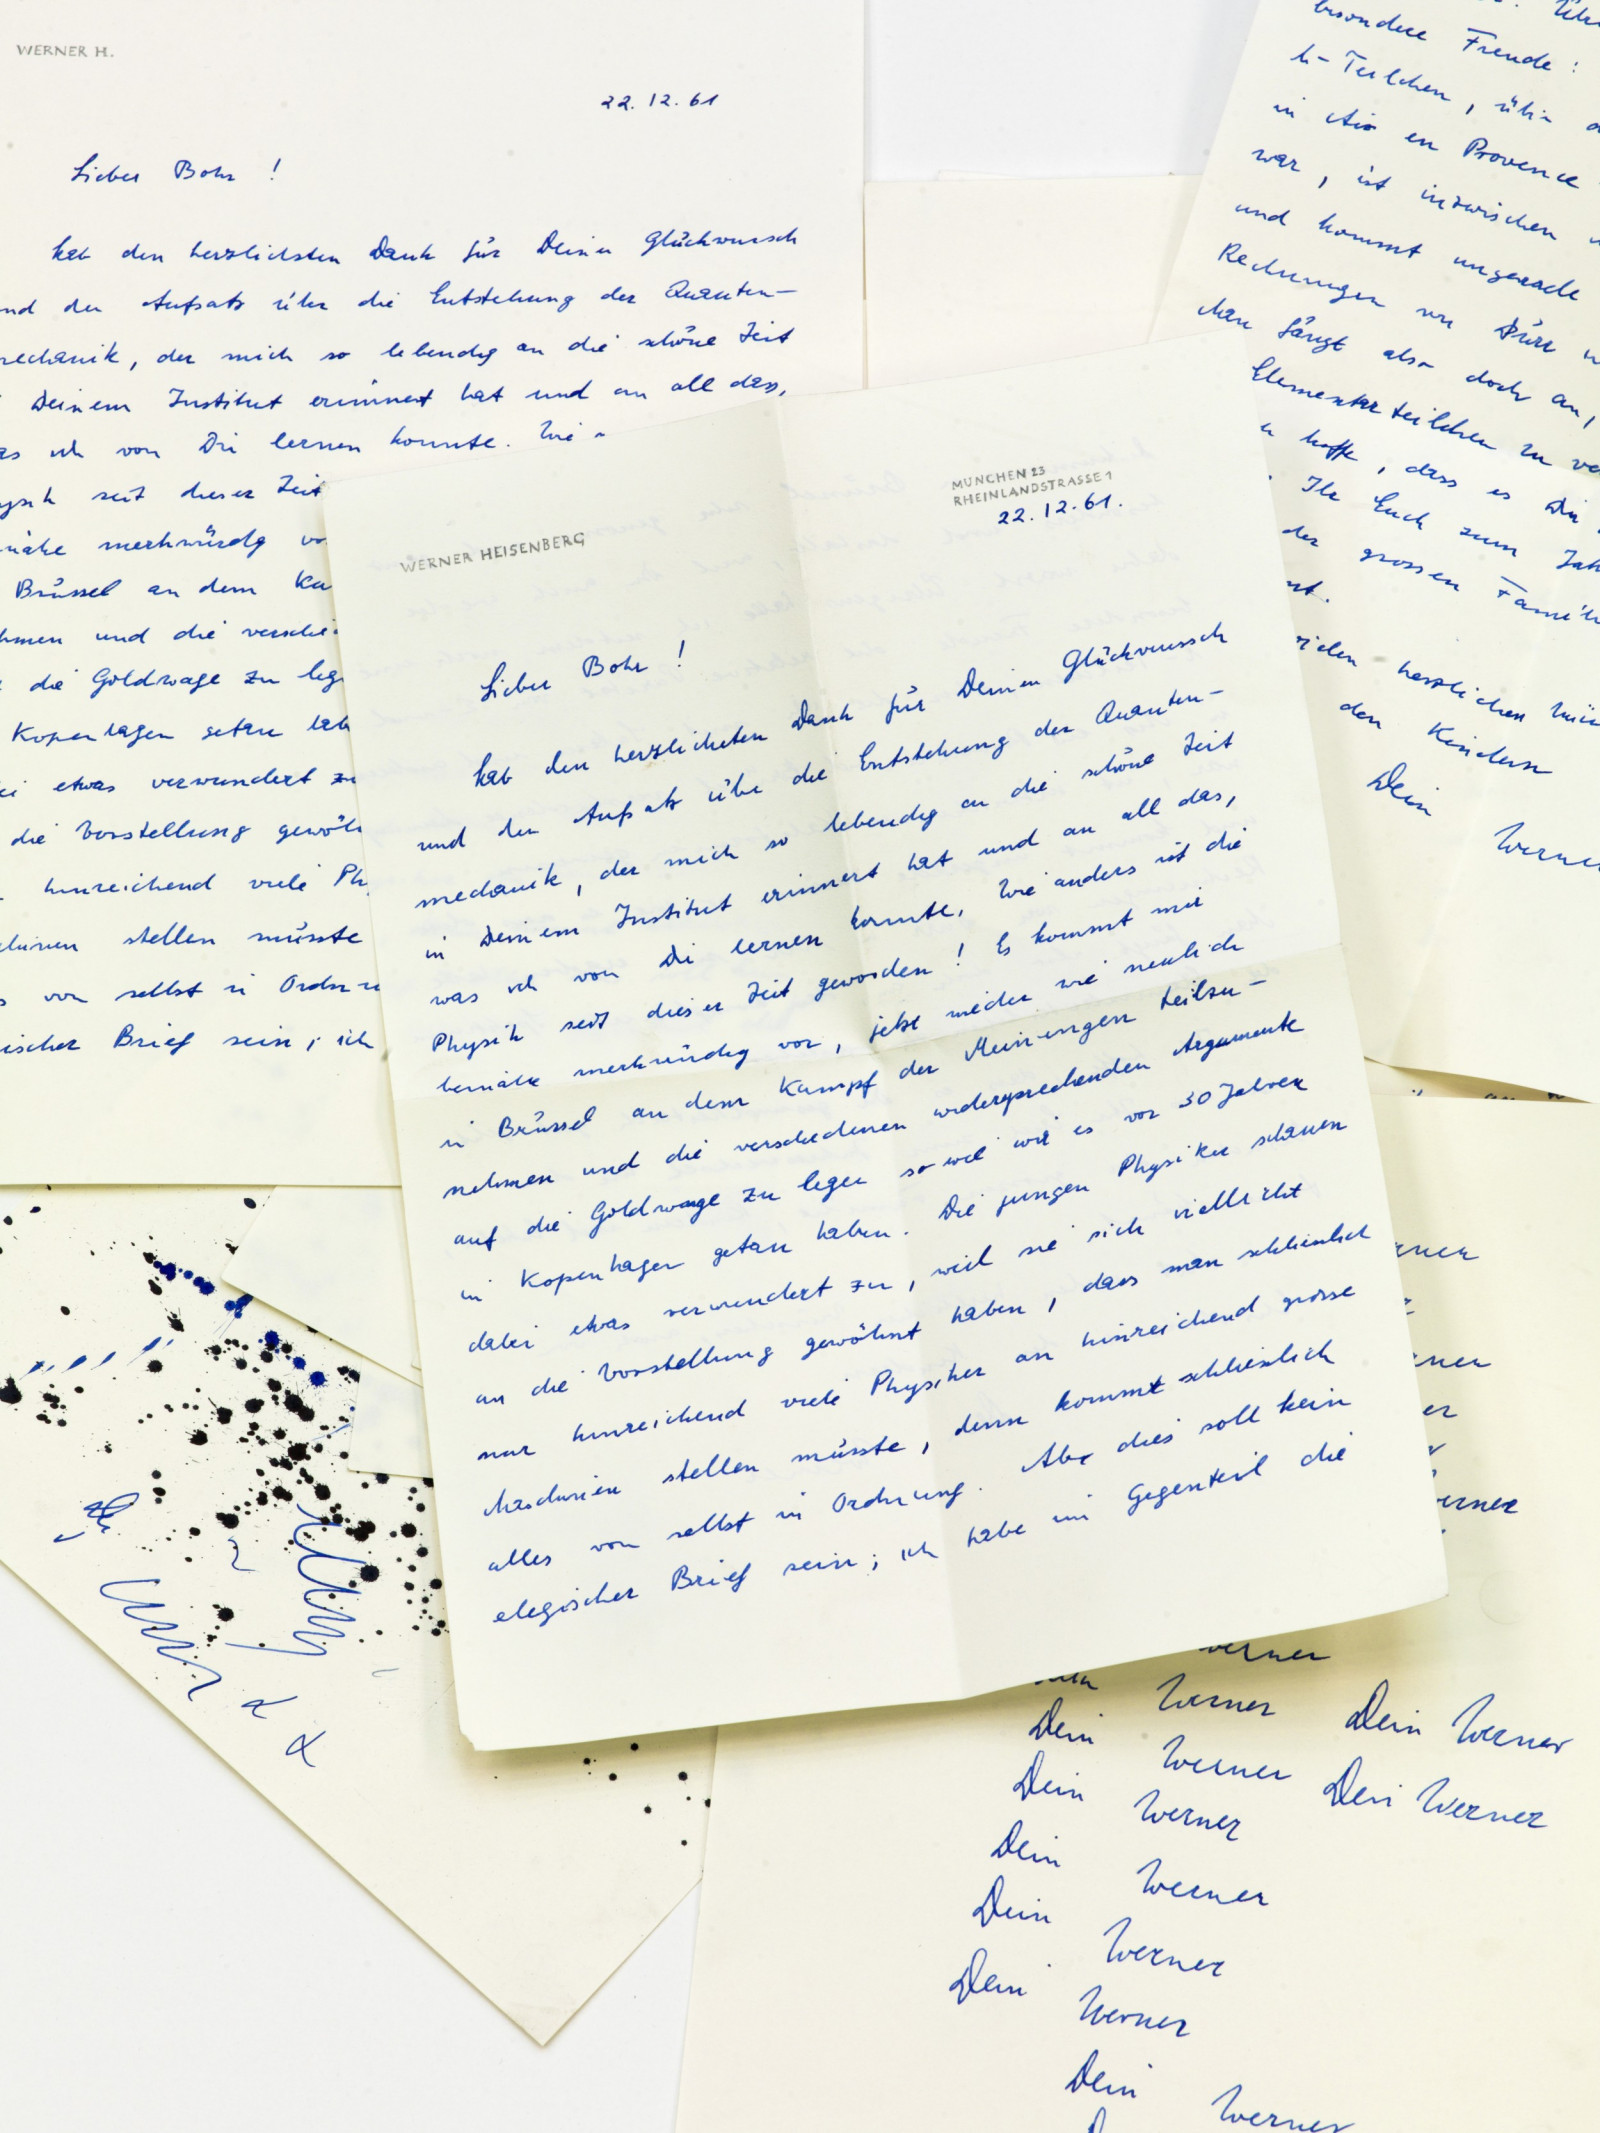 WERNER H.
22. 12. 61
Lieber Bohr !
hab den herzlichsten Dank für Deinen Glückwunsch
nd den Aufsatz über die Entstehung der Quanten-
echanik, der mich so lebendig an die schöne Zeit
Deinem Institut erinnert hat und an all dass,
as ich von Dir lernen konnte. Wie
ysik seit dieser Zeit
nahe merkwürdig vo
Brüssel an dem Ka
hmen und die verschie
die Goldwage zu leg
Kopenhagen getan hab
ei etwas verwundert zu
die Vorstellung gewöh
hinreichend viele Ph
chinen stellen müsste
s von selbst in Ordnu
ischer Brief sein; ich
WERNER HEISENBERG
MÜNCHEN 23
RHEINLANDSTRASSE 1
22.12.61.
Lieber Bohr !
hab den herzlichsten Dank für Deinen Glückwunsch
und den Aufsatz über die Entstehung der Quanten-
mechanik, der mich so lebendig an die schöne Zeit
in Deinem Institut erinnert hat und an all das,
was ich von Dir lernen konnte. Wie anders ist die
Physik seit dieser Zeit geworden ! Es kommt mir
beinahe merkwürdig vor, jetzt wieder wie neulich
in Brüssel an dem Kampf der Meinungen teilzu-
nehmen und die verschiedenen widersprechenden Argumente
auf die Goldwage zu legen so wie wir es vor 30 Jahren
in Kopenhagen getan haben. Die jungen Physiker schauen
dabei etwas verwundert zu, weil sie sich vielleicht
an die Vorstellung gewöhnt haben, dass man schliesslich
nur hinreichend viele Physiker an hinreichend grosse
Maschinen stellen müsste, dann kommt schliesslich
alles von selbst in Ordnung. Aber dies soll kein
elegischer Brief sein; ich habe im Gegenteil die
besondere Freude :
h-Teilchen, über
in Aix en Provence
war, ist inzwischen
und kommt ungerade
Rechnungen von Dürr
Man fängt also doch an,
Elementarteilchen zu ve
hoffe, dass es Dir
Ihr Euch zum Jah
der grossen Famil
herzlichen
den Kindern
Dein
Werne
rner
ner
er
erner
Werner
Werner Dein Werner
Dein Werner Dein Werner
Dein Werner
Dein Werner
Dein Werner
Dein Werner
Dein Werner